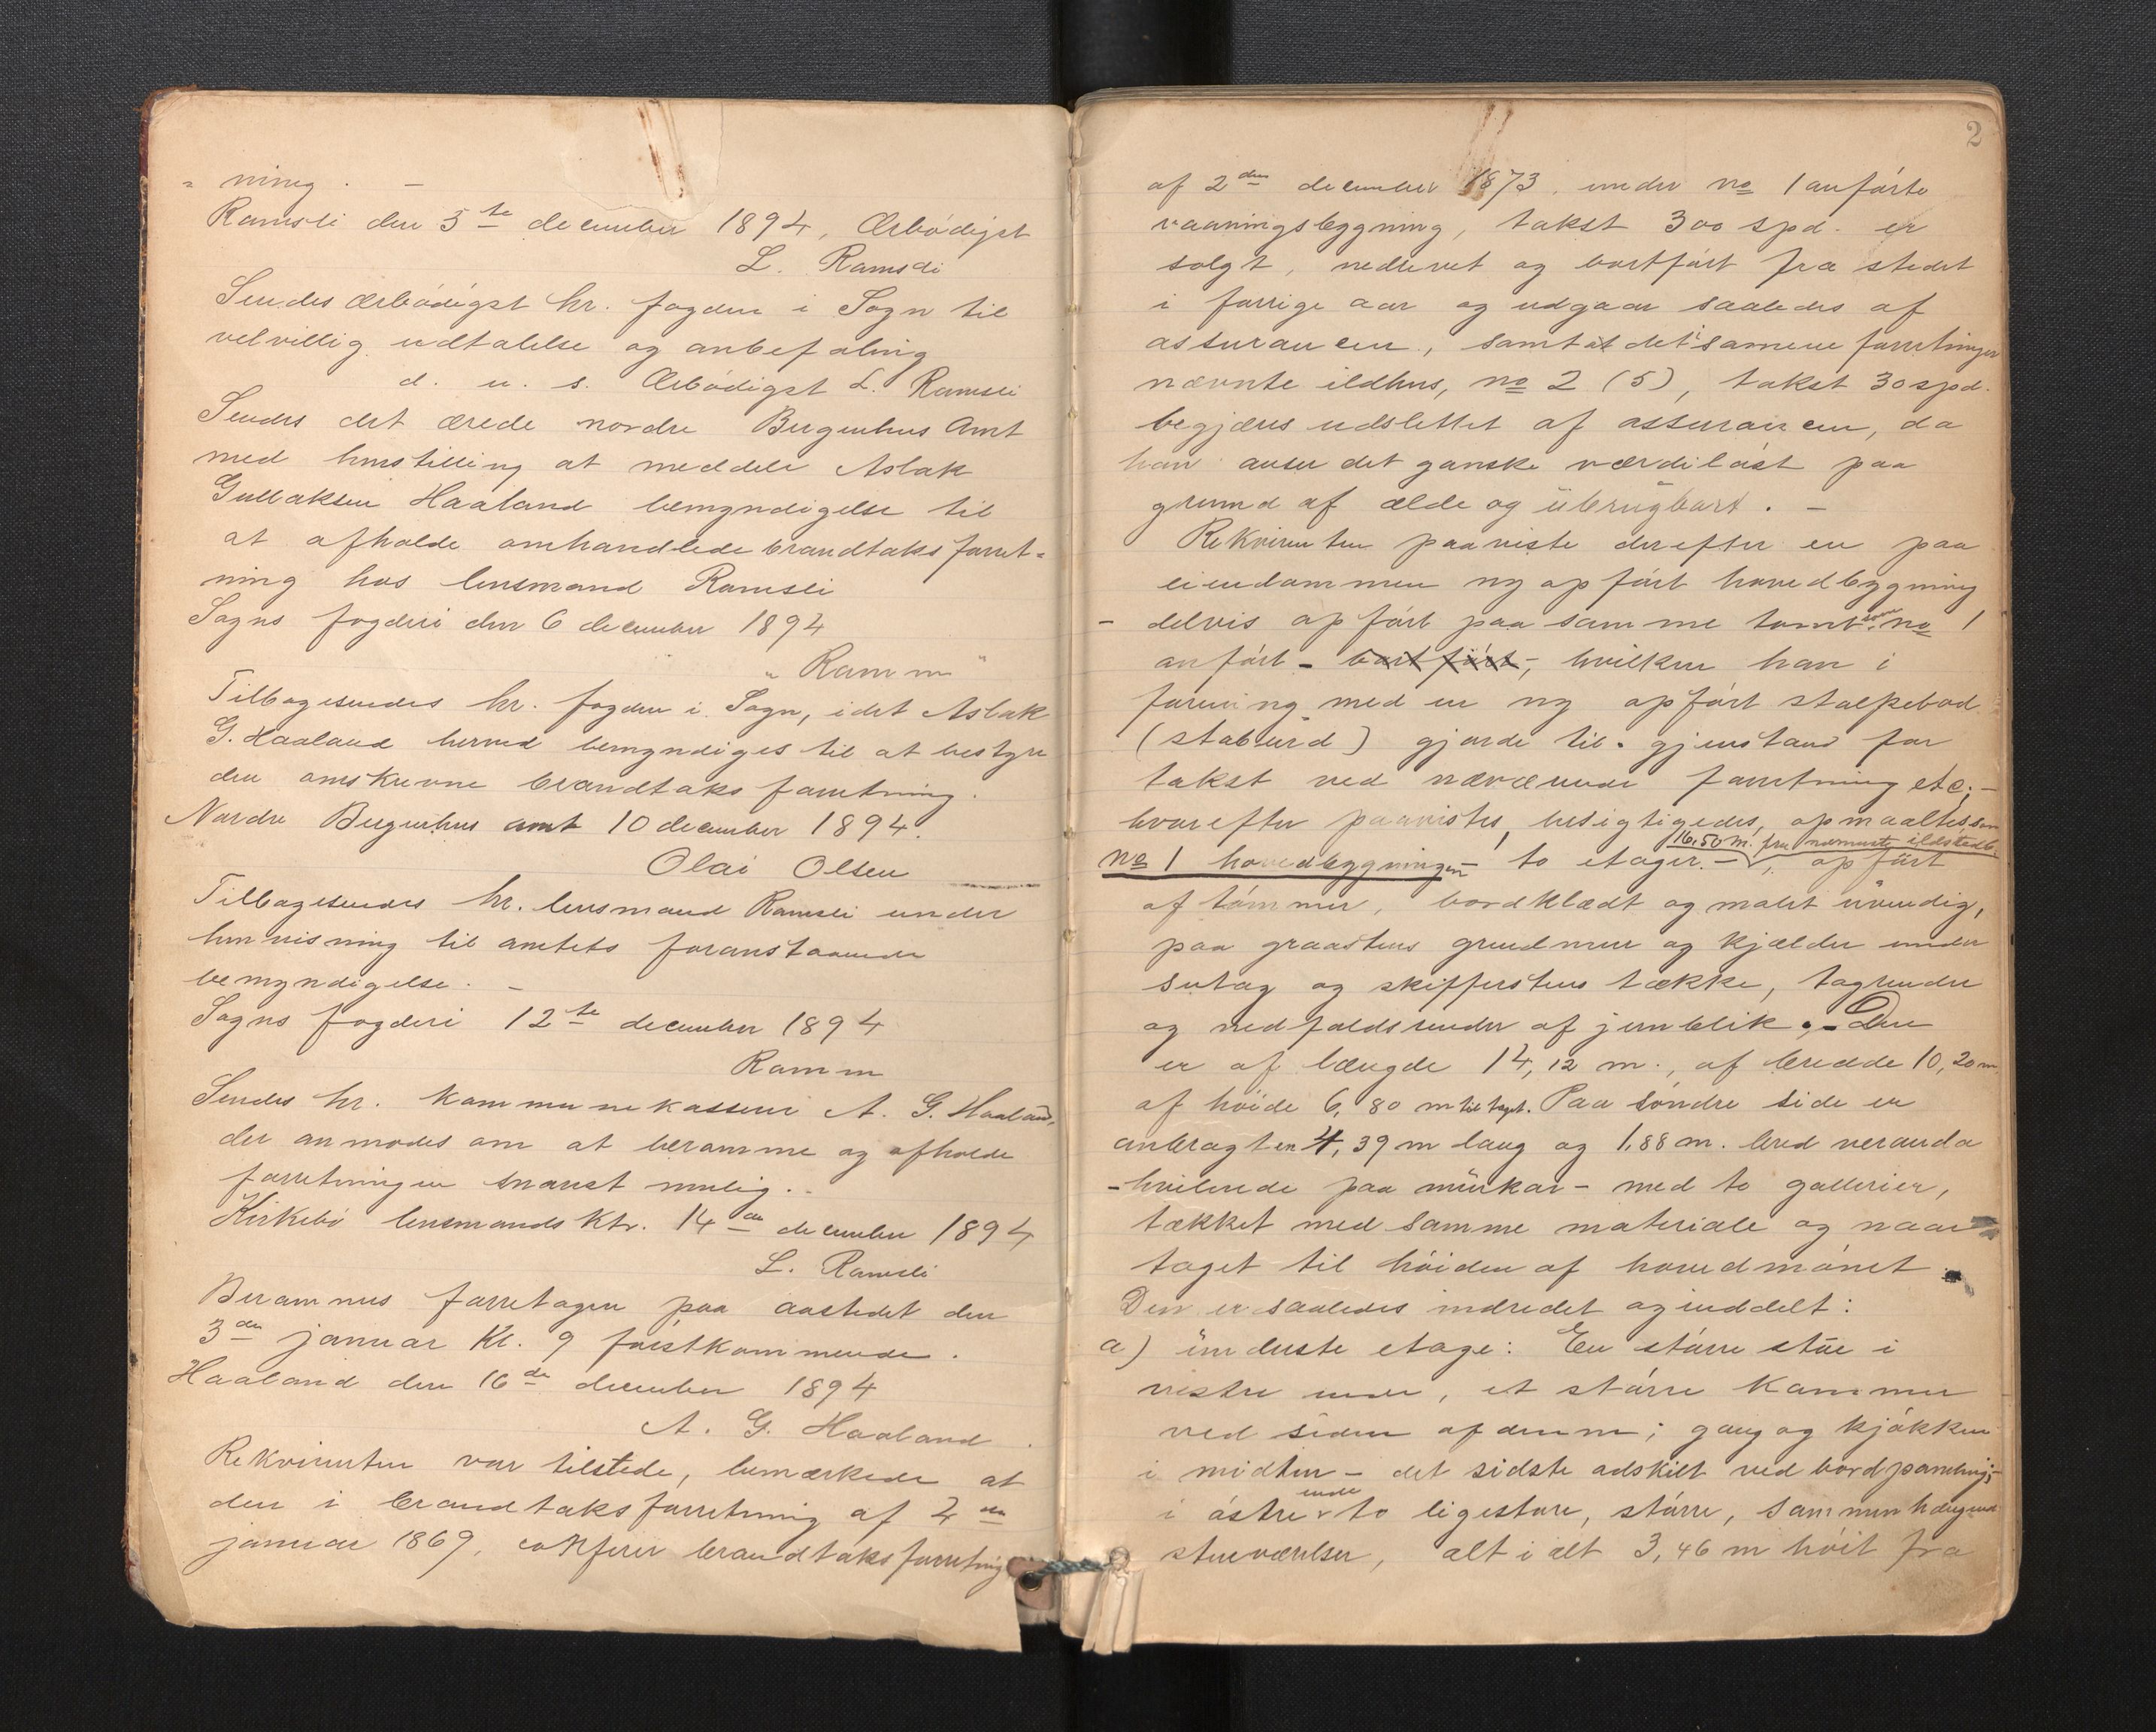 „ ning. –
Ramsli den 3te december 1894, Ærbødigst
L. Ramsli
Sendes ærbødigst hr. fogden i Sogn til
velvillig udtalelse og anbefaling
d. u. s. Ærbødigst L. Ramsli
Sendes det ærede nordre Bergenhus Amt
med henstilling at meddele Aslak
Gullaksen Haaland bemyndigelse til
at afholde omhandlede brandtaksforret-
ning hos lensmand Ramsli
Sogns fogderi den 6 december 1894
„ Ramm "
Tilbagesendes hr. fogden i Sogn, idet Aslak
G. Haaland herved bemyndiges til at bestyre
den omskrevne brandtaksforretning.
Nordre Bergenhus amt 10 december 1894.
Olai Olsen
Tilbagesendes hr. lensmand Ramsli under
henvisning til amtets foranstaaende
bemyndigelse. –
Sogns fogderi 12te december 1894
Ramm
Sendes hr. kommunekasserer A. G. Haaland,
der anmodes om at beramme og afholde
forretningen snarest mulig.
Kirkebø lensmandsktr. 14de december 1894
L. Ramsli
Berammes foretagen paa aastedet den
3die januar Kl. 9 førstkommende.
Haaland den 16de december 1894
A. G. Haaland
Rekvirenten var tilstede, bemærkede at
den i brandtaksforretning af 4de
januar 1869, confererer brandtaksforretning
2
af 2den december 1873, under No 1 anførte
vaaningsbygning, takst 300 spd. er
solgt, nedrevet og bortført fra stedet
i forrige aar og udgaar saaledes af
assurancen, samt at det i samme forretninger
nævnte ildhus, No 2 (5), takst 30 spd.
begjæres udslettet af assurancen, da
han anser det ganske værdiløst paa
grund af ælde og ubrugbart. –
Rekvirenten paaviste derefter en paa
eiendommen ny opført hovedbygning
– delvis opført paa samme tomt som No 1
anført – bortført –, hvilken han i
forening med en ny opført stolpebod
(stabburd) gjorde til gjenstand for
takst ved nærværende forretning etc; –
hvorefter paavistes, besigtigedes, opmaaltes som
16,50 m. fra nærmeste ildsted
No 1 hovedbygningen – to etager. – , opført
af tømmer, bordklædt og malet udvendig,
paa graastens grundmur og kjælder under
sutag og skifferstens tække, tagrender
og nedfaldsrender af jernblik. – Den
er af længde 14,12 m., af bredde 10,20 m
af høide 6,80 m til taget. Paa søndre side er
anbragt en 4,39 m lang og 1,88 m. bred veranda
– hvilende paa murkar – med to gallerier,
tækket med samme materiale og naar
taget til høiden af hovedmønet.
Den er saaledes indredet og inddelt:
a) underste etage: En større stue i
vestre ende, et større kammer
ved siden af denne; gang og kjøkken
i midten – det sidste adskilt ved bordpaneling;
ende
i østre to ligestore, større, sammenhængende
stueværelser, alt i alt 3,46 m høit fra